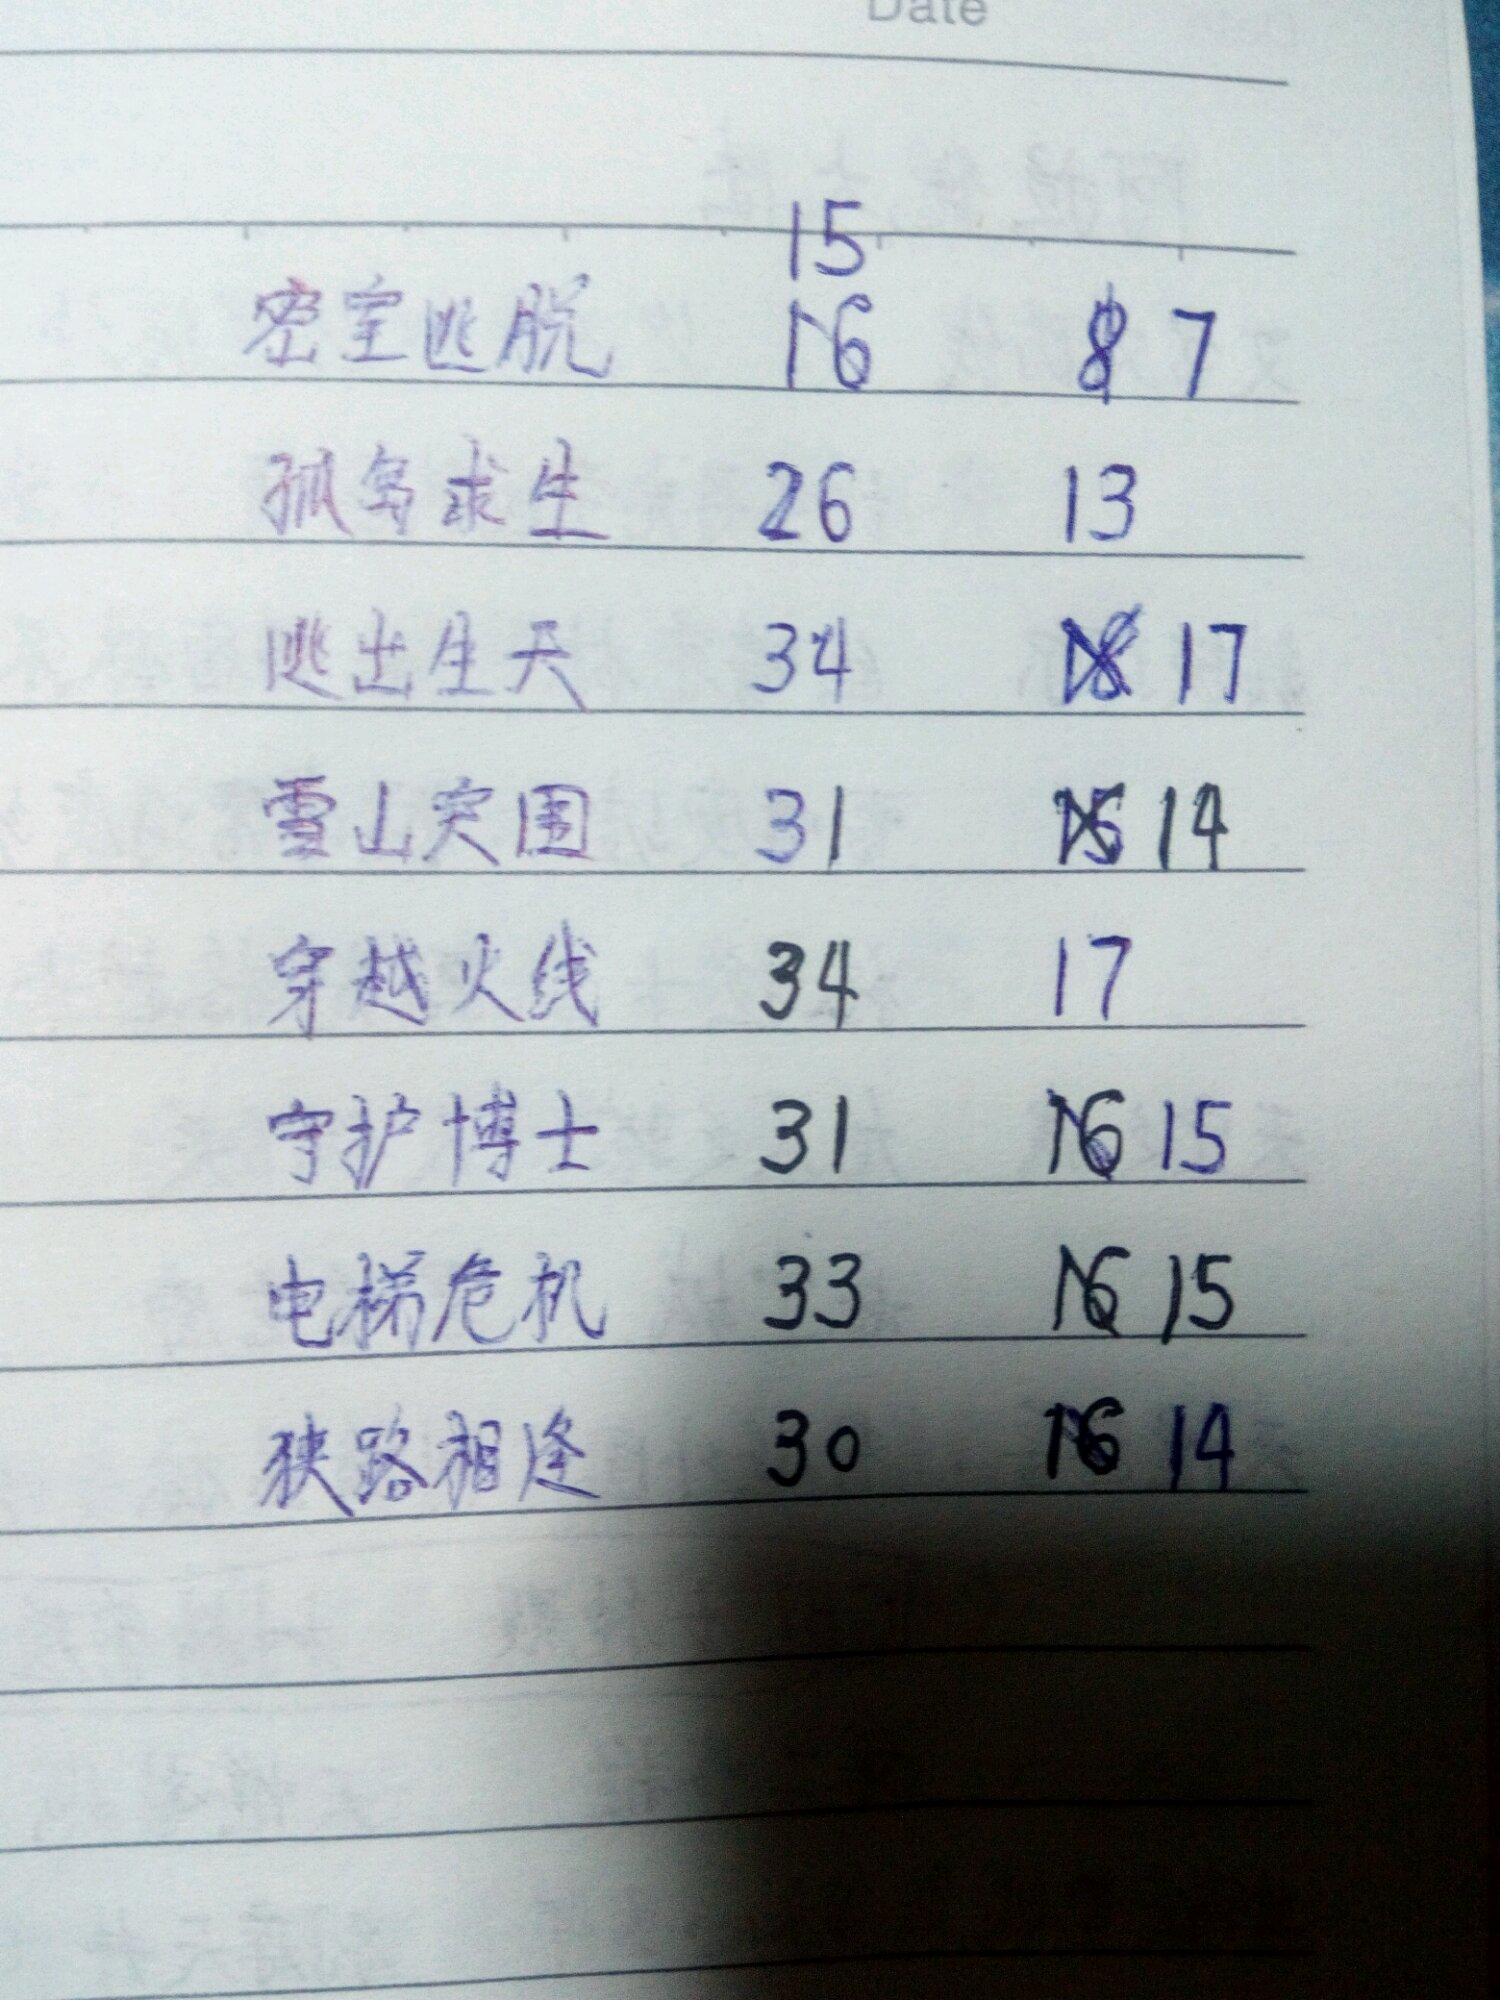 Date
15
密室逃脱 16 8 7
孤岛求生 26 13
逃出生天 34 18 17
雪山突围 31 15 14
穿越火线 34 17
守护博士 31 16 15
电梯危机 33 16 15
狭路相逢 30 16 14